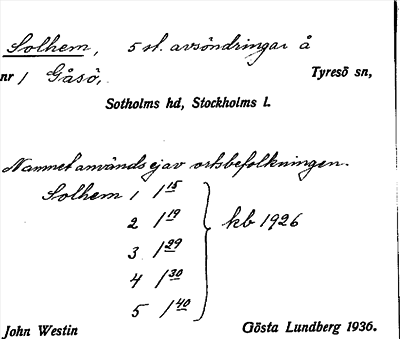 Solhem, 5 st. avsöndringar å
nr 1 Gåsö, Tyresö sn,
Sotholms hd, Stockholms l.
Namnet används ej av ortsbefolkningen.
Solhem 1 1 15
2 1 19
3 1 29 kb 1926
4 1 30
5 1 40
John Westin Gösta Lundberg 1936.